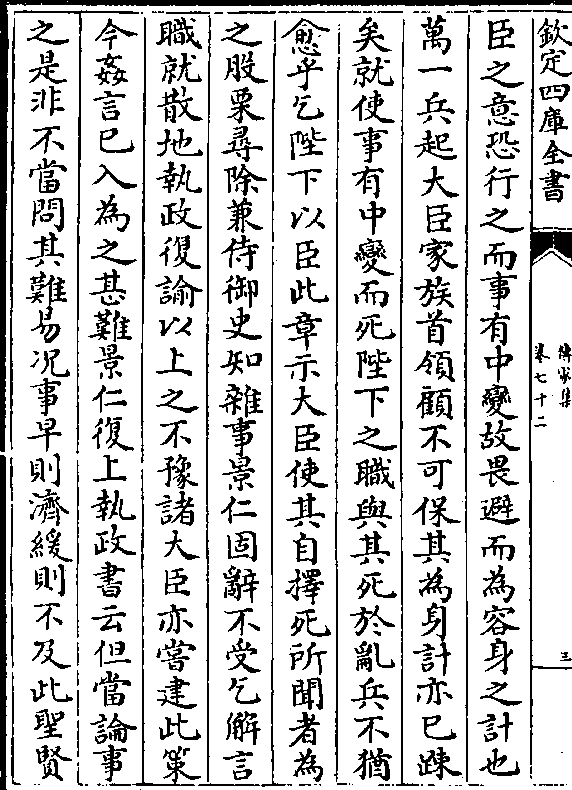 欽定四庫全書
傳家集
卷七十二
三
臣之意恐行之而事有中變故畏避而為容身之計也
萬一兵起大臣家族首領顧不可保其為身計亦已踈
矣就使事有中變而死陛下之職與其死於亂兵不猶
愈乎乞陛下以臣此章示大臣使其自擇死所聞者為
之股栗尋除兼侍御史知雜事景仁固辭不受乞解言
職就散地執政復諭以上之不豫諸大臣亦嘗建此策
今姦言已入為之甚難景仁復上執政書云但當論事
之是非不當問其難易况事早則濟緩則不及此聖賢